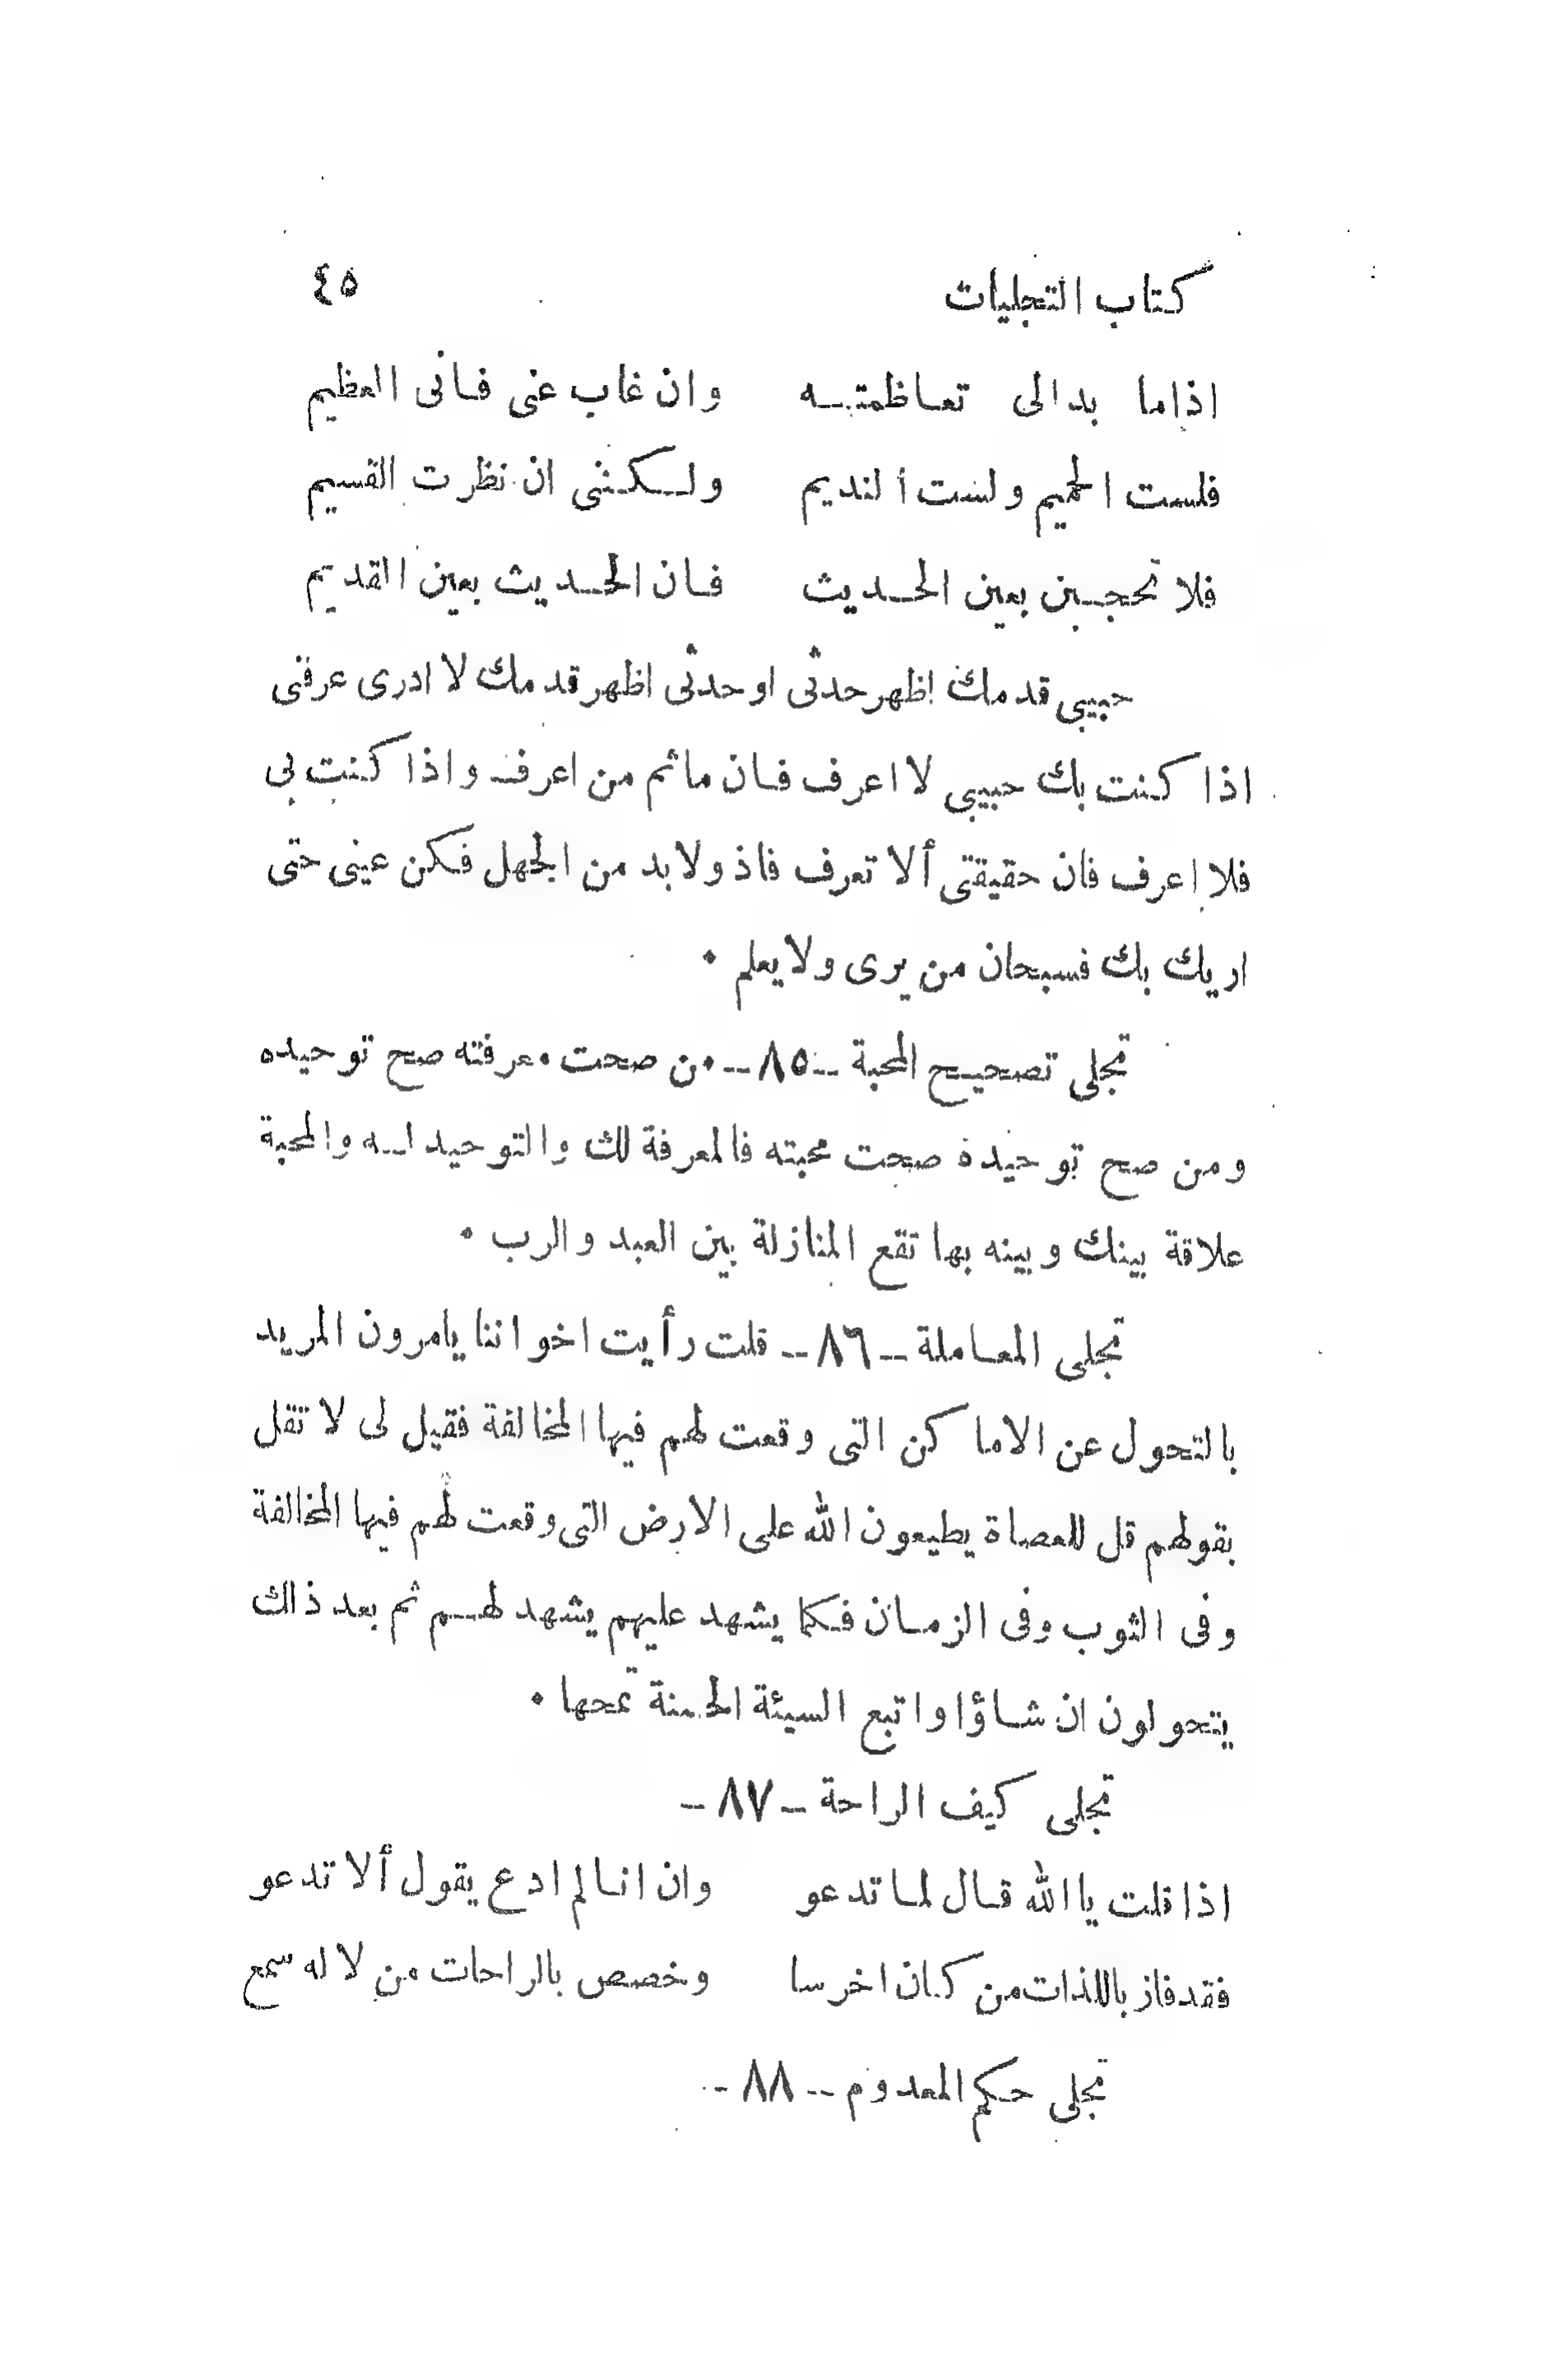 كتاب التجليات ٤٥
اذاما بدالى تعاظمته وان غاب عنى فانى العظيم
فلست الحميم ولست النديم ولكننى ان نظرت القسيم
فلا تحجبن بعين الحديث فان الحديث بعين القديم
حبيبى قدمك اظهر حدثى او حدثى اظهر قدمك لا ادرى عرفنى
اذا كنت بك حبيبى لا اعرف فان ما ثم من اعرف واذا كنت بى
فلا اعرف فان حقيقتى ألا تعرف فاذ ولا بد من الجهل فكن عينى حتى
اريك بك فسبحان من يرى ولا يعلم ٠
تجلى تصحيح المحبة -- ٨٥ -- من صحت معرفته صح توحيده
ومن صح توحيده صحت محبته فالمعرفة لك والتوحيد له والمحبة
علاقة بينك وبينه بها تقع المنازلة بين العبد والرب ٠
تجلى المعاملة -- ٨٦ -- قلت رأيت اخواننا يامرون المريد
بالتحول عن الاماكن التى وقعت لهم فيها المخالفة فقيل لى لا تقل
بقولهم قل للعصاة يطيعون الله على الارض التى وقعت لهم فيها المخالفة
وفى الثوب وفى الزمان فكما يشهد عليهم يشهد لهم ثم بعد ذالك
يتحولون ان شاؤا واتبع السيئة الحسنة تمحها ٠
تجلى كيف الراحة - ٨٧ -
اذا قلت يا الله قال لما تدعو وان انا لم ادع يقول ألا تدعو
فقد فاز باللذات من كان اخرسا وخصص بالراحات من لا له سمع
تجلى حكم المعدوم -- ٨٨ -